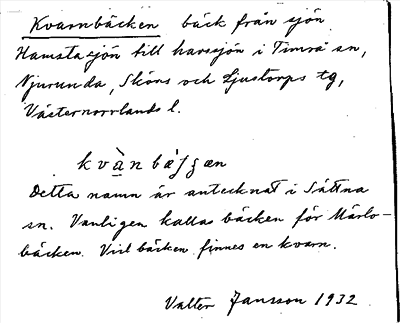 Kvarnbäcken bäck från sjön
Hamstasjön till havssjön i Timrå sn,
Njurunda, Sköns och Ljustorps tg,
Västernorrlands l.
kvànbæ̀jʒæn
Detta namn är antecknat i Sättna
sn. Vanligen kallas bäcken för Märlo-
bäcken. Vid bäcken finnes en kvarn.
Valter Jansson 1932